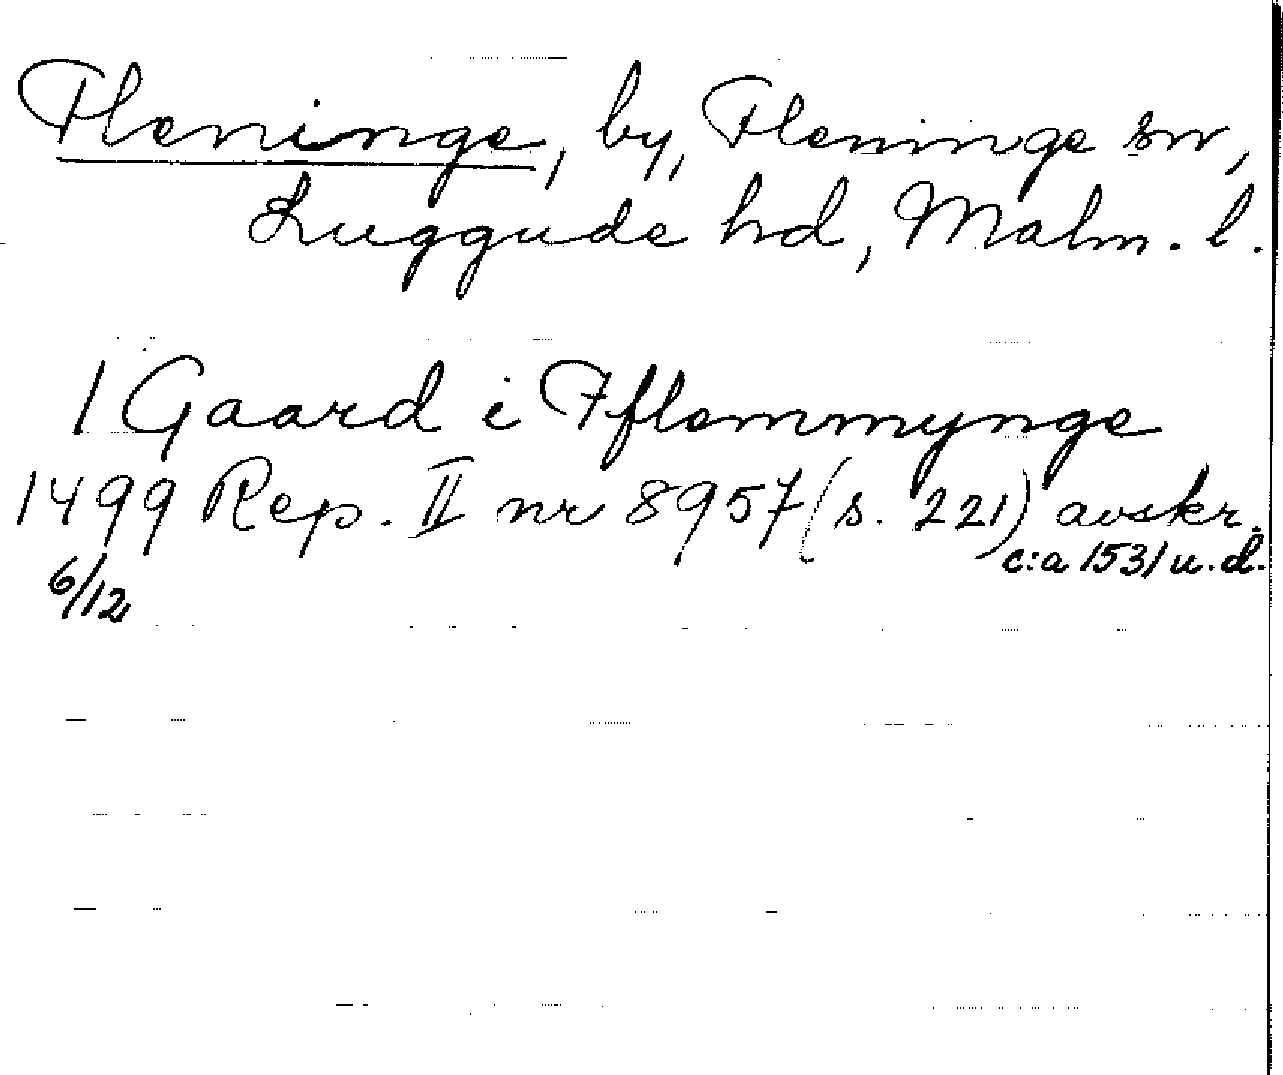 Fleninge, by, Fleninge sn,
Luggude hd, Malm. l.
1 Gaard i Fflemmynge
1499 Rep. II nr 8957 (s. 221) avskr.
c:a 1531 u.d.
6/12